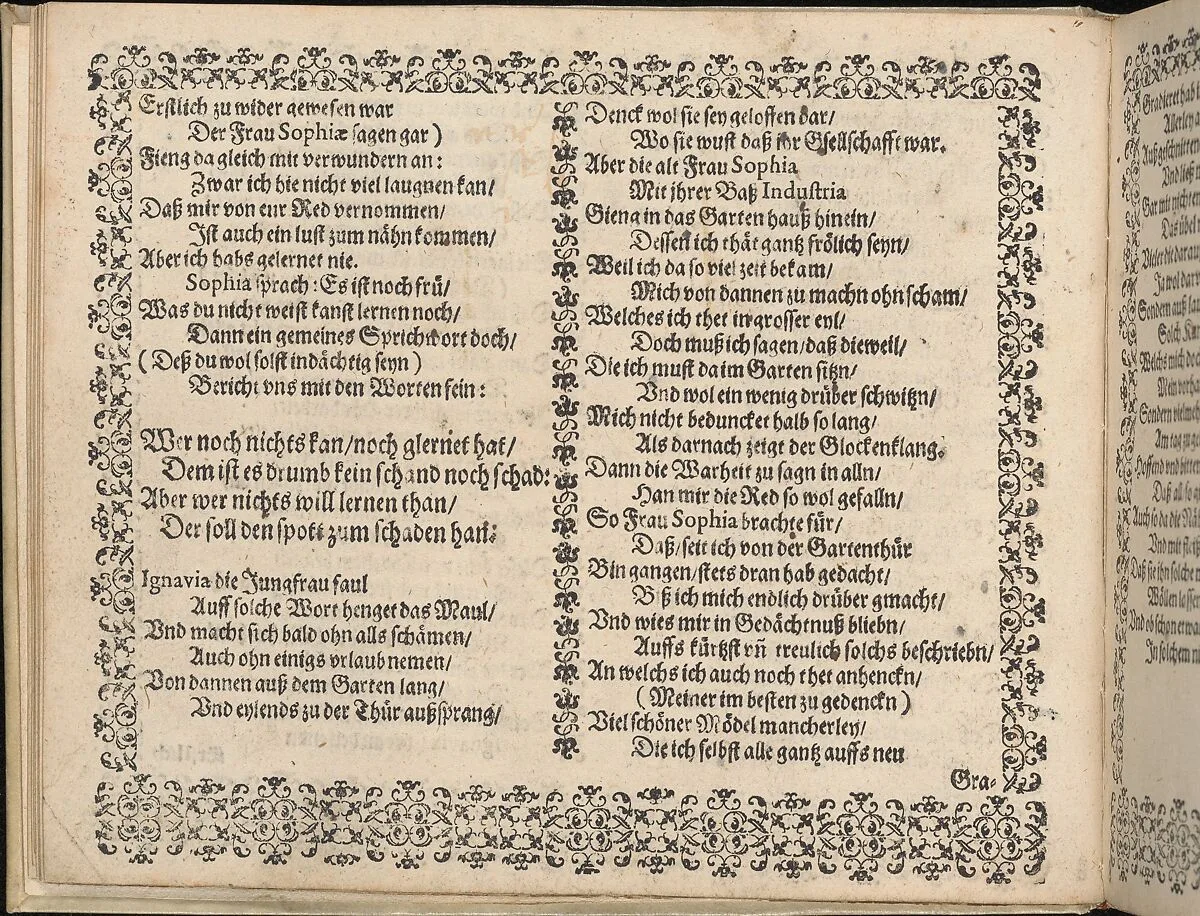 Erstlich zu wider gewesen war
Der Frau Sophiæ sagen gar)
Fieng da gleich mit verwundern an:
Zwar ich hie nicht viel laugnen kan/
Daß mir von eur Red vernommen/
Ist auch ein lust zum nähn kommen/
Aber ich habs gelernet nie.
Sophia sprach: Es ist noch frü/
Was du nicht weist kanst lernen noch/
Dann ein gemeines Sprichwort doch/
(Deß du wol solst indächtig seyn)
Bericht vns mit den Worten fein:
Wer noch nichts kan/noch glernet hat/
Dem ist es drumb kein schand noch schad:
Aber wer nichts will lernen than/
Der soll den spott zum schaden han:
Ignavia die Jungfrau faul
Auff solche Wort henget das Maul/
Vnd macht sich bald ohn alls schämen/
Auch ohn einigs vrlaub nemen/
Von dannen auß dem Garten lang/
Vnd eylends zu der Thür außsprang/
Denck wol sie sey geloffen dar/
Wo sie wust daß ihr Gsellschafft war.
Aber die alt Frau Sophia
Mit jhrer Baß Industria
Gieng in das Garten hauß hinein/
Dessen ich thät gantz frölich seyn/
Weil ich da so viel zeit bekam/
Mich von dannen zu machn ohn scham/
Welches ich thet in grosser eyl/
Doch muß ich sagen/daß dieweil/
Die ich must da im Garten sitzn/
Vnd wol ein wenig drüber schwitzn/
Mich nicht beduncket halb so lang/
Als darnach zeigt der Glockenklang.
Dann die Warheit zu sagn in alln/
Han mir die Red so wol gefalln/
So Frau Sophia brachte für/
Daß/seit ich von der Gartenthür
Bin gangen/stets dran hab gedacht/
Biß ich mich endlich drüber gmacht/
Vnd wies mir in Gedächtnuß bliebn/
Auffs kürtzst vñ treulich solchs beschriebn/
An welchs ich auch noch thet anhenckn/
(Meiner im besten zu gedenckn)
Viel schöner Mödel mancherley/
Die ich selbst alle gantz auffs neu
Gra-
Gradieret hab
Allerley
Außgeschnitten
Vnd ließ
Gar mit nichten
Das übel
Ja wol dar
Sondern auß
Solch
Welchs mich doch
Mein
Sondern vielmehr
Am tag
Hoffend vnd bitten
Daß all so
Auch so da die
Vnd mit fleiß
Daß sie ihn solche
Wöllen lassen
Vnd ob schon etwas
In solchem